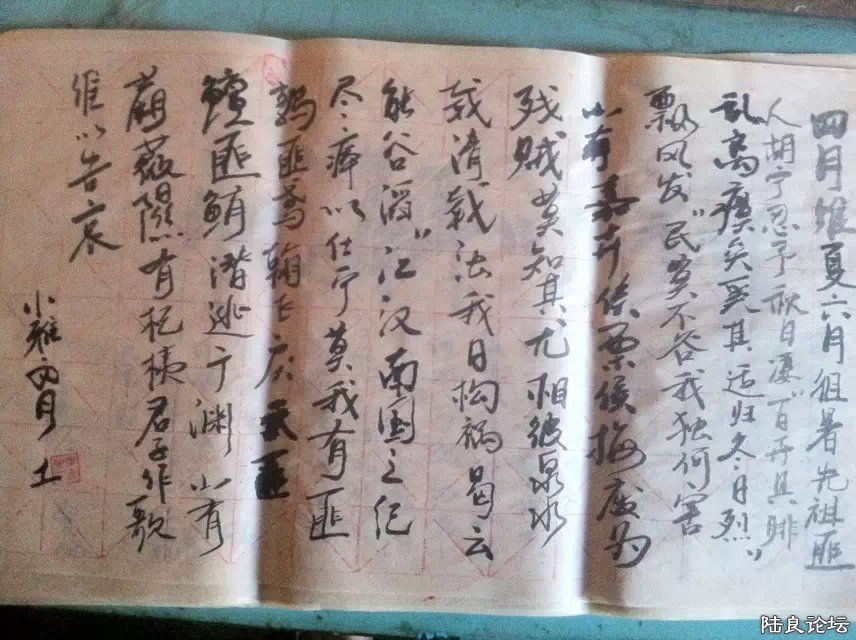 四月维夏六月徂暑先祖匪
人胡宁忍予秋日凄〃百卉具腓
乱离瘼矣爰其适归冬日烈〃
飘风发〃民莫不谷我独何害
山有嘉卉侯栗侯梅废为
残贼莫知其尤相彼泉水
载清载浊我日构祸曷云
能谷滔〃江汉南国之纪
尽瘁以仕宁莫我有匪
鹑匪鸢翰飞戾天匪
鳣匪鲔潜逃于渊山有
蕨薇隰有杞桋君子作歌
维以告哀
小雅四月 土
陆良论坛